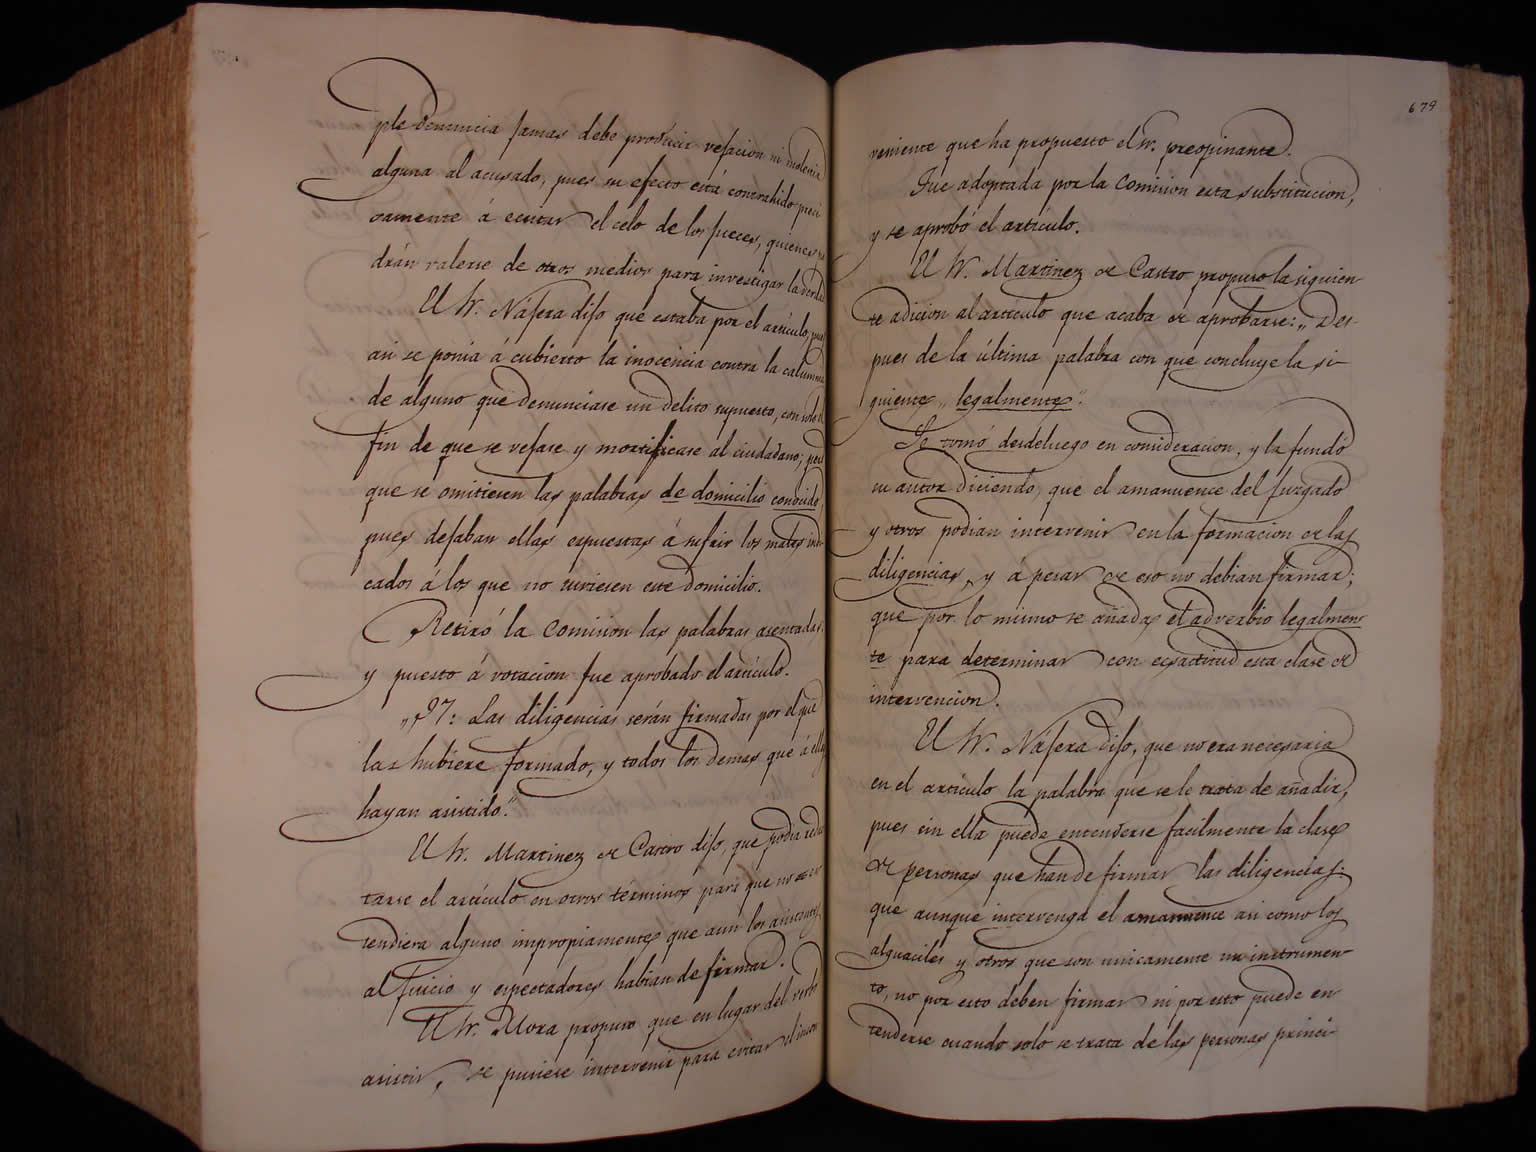 ple denuncia jamas debe producir vejacion ni molestia
alguna al acusado, pues su efecto está contrahido preci
samente á ecsitar el celo de los jueces, quienes po
drán valerse de otros medios para investigar la verdad
El Sr. Nájera dijo que estaba por el artículo, pues
asi se ponia á cubierto la inocencia contra la calumnia
de alguno que denunciase un delito supuesto, con solo el
fin de que se vejase y mortificase al ciudadano; pero
que se omitiesen las palabras de domicilio conocido,
pues dejaban ellas espuestas á sufrir los males indi
cados á los que no tuviesen este domicilio.
Retiró la Comision las palabras asentadas,
y puesto á votacion fue aprobado el artículo.
„97: Las diligencias serán firmadas por el que
las hubiere formado, y todos los demas que á ellas
hayan asistido."
El Sr. Martinez de Castro dijo, que podia redac
tarse el artículo en otros términos para que no se en
tendiera alguno impropiamente que aun los asistentes
al juicio y espectadores habian de firmar.
El Sr. Mora propuso que en lugar del verbo
asistir, se pusiese intervenir para evitar el incon
679
veniente que ha propuesto el Sr. preopinante.
Fue adoptada por la Comision esta substitucion,
y se aprobó el artículo.
El Sr. Martinez de Castro propuso la siguien
te adicion al artículo que acaba de aprobarse: „Des-
pues de la última palabra con que concluye la si-
guiente „legalmente".
Se tomó desdeluego en consideracion, y la fundó
su autor diciendo, que el amanuence del Juzgado
y otros podian intervenir en la formacion de las
diligencias, y á pesar de eso no debian firmar;
que por lo mismo se añada el adverbio legalmen-
te para determinar con ecsactitud esta clase de
intervencion.
El Sr. Nájera dijo, que no era necesaria
en el artículo la palabra que se le trata de añadir,
pues sin ella puede entenderse facilmente la clase
de personas que han de firmar las diligencias:
que aunque intervenga el amanuence asi como los
alguaciles y otros que son unicamente un instrumen-
to, no por esto deben firmar ni por esto puede en
tenderse cuando solo se trata de las personas princi-